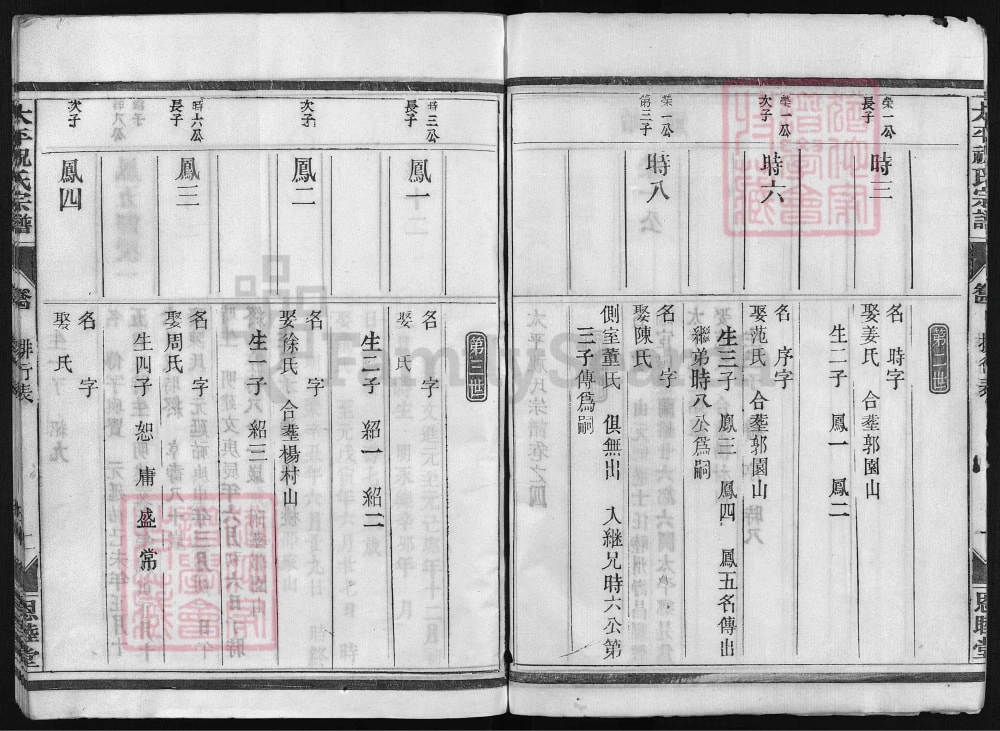 太平祝氏宗譜
恩睦堂
第二世
榮一公
長子
時三
名 時字
娶姜氏 合塟郭園山
生二子 鳳一 鳳二
榮一公
次子
時六
名 序字
娶范氏 合塟郭園山
生三子 鳳三 鳳四 鳳五名傳出
繼弟時八公爲嗣
榮一公
第三子
時八
名 字
娶陳氏
側室董氏 俱無出 入継兄時六公第
三子傳爲嗣
第三世
時三公
長子
鳳一
名 字
娶 氏
生二子 紹一 紹二
次子
鳳二
名 字
娶徐氏 合塟楊村山
生一子 紹三
時六公
長子
鳳三
名 字
娶周氏
生四子 恕 庸 盛 常
次子
鳳四
名 字
娶 氏
太平祝氏宗譜
排行表
二
恩睦堂
FamilySearch